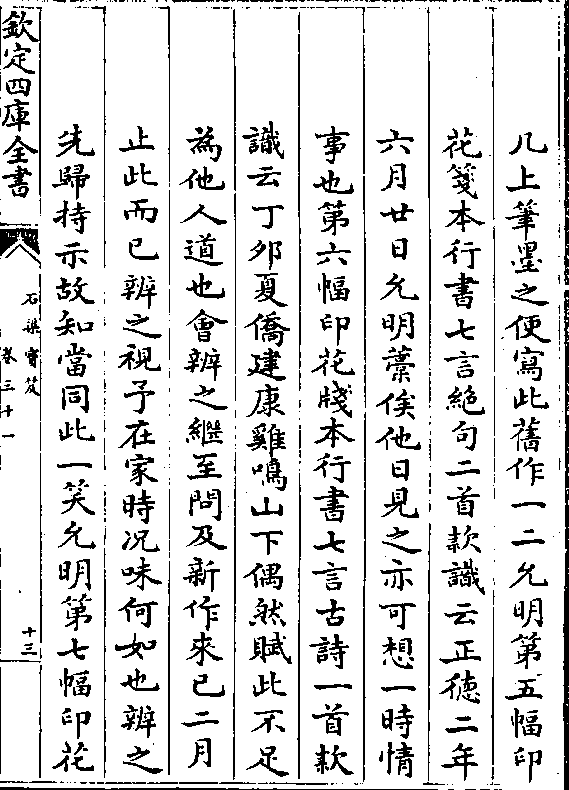 几上筆墨之便寫此舊作一二允明第五幅印
花箋本行書七言絶句二首款識云正徳二年
六月廿日允明藁俟他日見之亦可想一時情
事也第六幅印花牋本行書七言古詩一首款
識云丁夘夏僑建康雞鳴山下偶然賦此不足
為他人道也會辨之繼至問及新作來已二月
止此而已辨之視予在家時况味何如也辨之
先歸持示故知當同此一笑允明第七幅印花
欽定四庫全書
石渠寳笈
卷三十一
十三